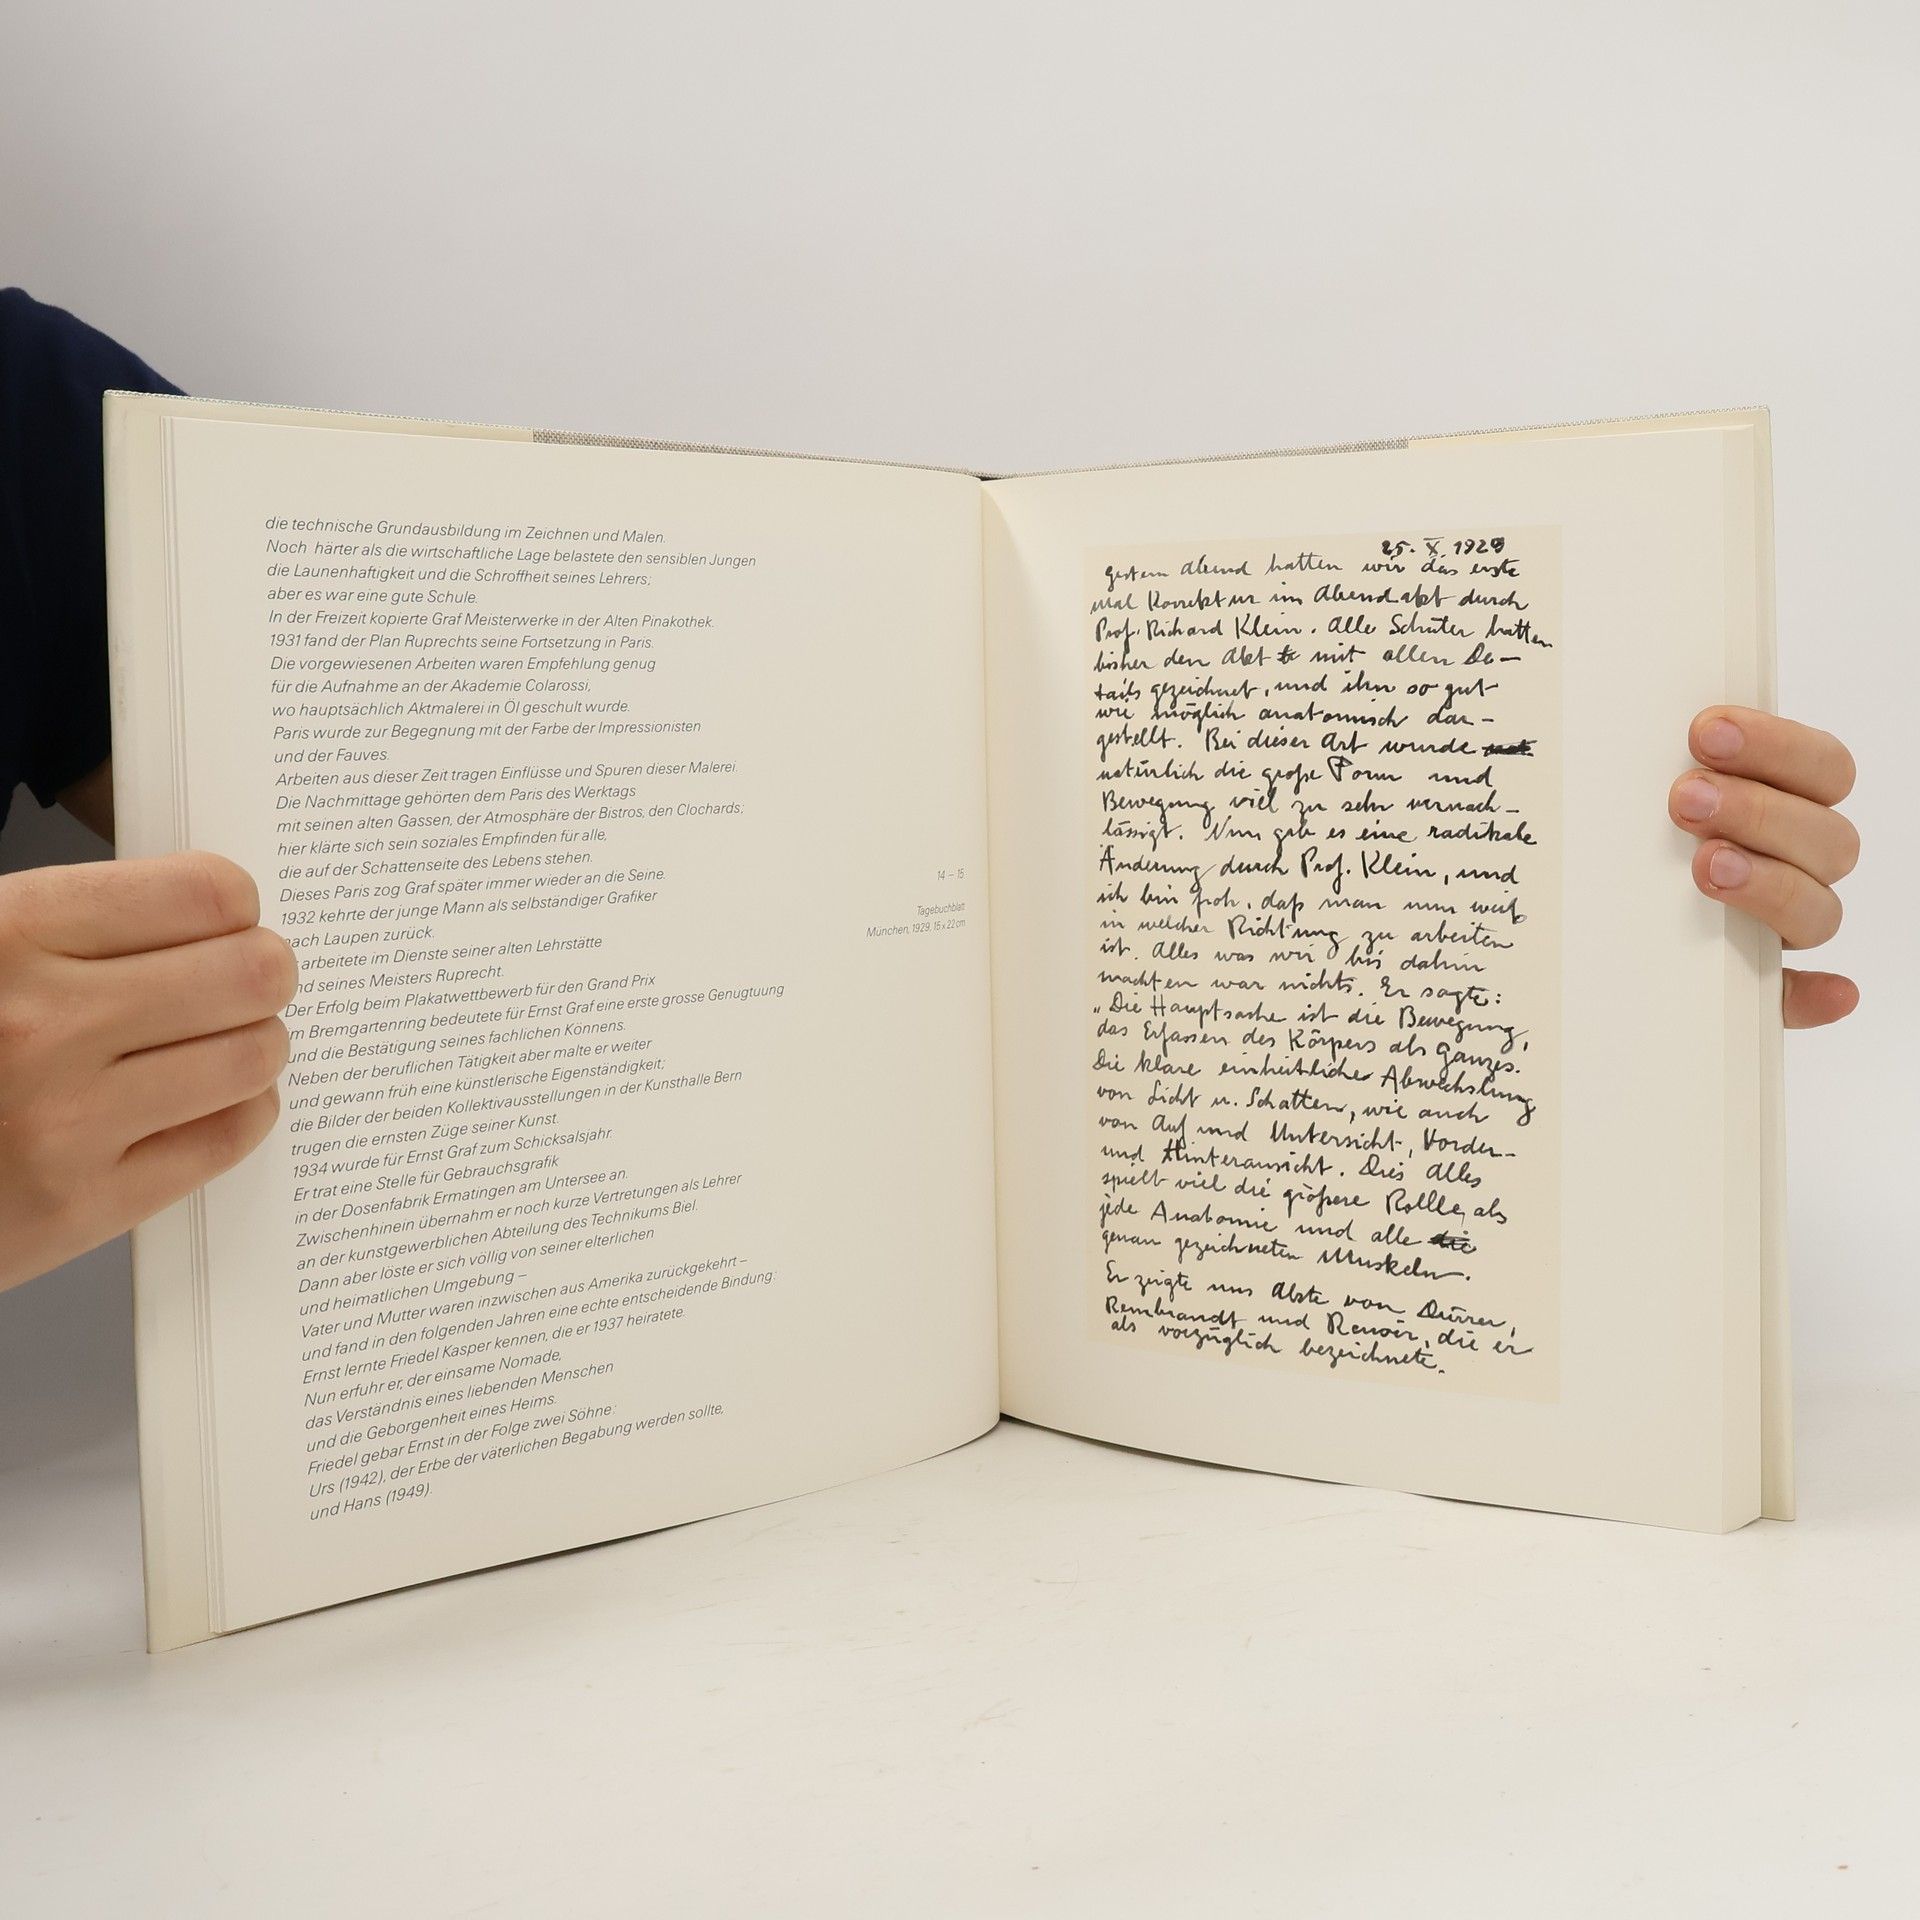 die technische Grundausbildung im Zeichnen und Malen.
Noch härter als die wirtschaftliche Lage belastete den sensiblen Jungen
die Launenhaftigkeit und die Schroffheit seines Lehrers;
aber es war eine gute Schule.
In der Freizeit kopierte Graf Meisterwerke in der Alten Pinakothek.
1931 fand der Plan Ruprechts seine Fortsetzung in Paris.
Die vorgewiesenen Arbeiten waren Empfehlung genug
für die Aufnahme an der Akademie Colarossi,
wo hauptsächlich Aktmalerei in Öl geschult wurde.
Paris wurde zur Begegnung mit der Farbe der Impressionisten
und der Fauves.
Arbeiten aus dieser Zeit tragen Einflüsse und Spuren dieser Malerei.
Die Nachmittage gehörten dem Paris des Werktags
mit seinen alten Gassen, der Atmosphäre der Bistros, den Clochards;
hier klärte sich sein soziales Empfinden für alle,
die auf der Schattenseite des Lebens stehen.
Dieses Paris zog Graf später immer wieder an die Seine.
1932 kehrte der junge Mann als selbständiger Grafiker
nach Laupen zurück.
arbeitete im Dienste seiner alten Lehrstätte
nd seines Meisters Ruprecht.
Der Erfolg beim Plakatwettbewerb für den Grand Prix
im Bremgartenring bedeutete für Ernst Graf eine erste grosse Genugtuung
und die Bestätigung seines fachlichen Könnens.
Neben der beruflichen Tätigkeit aber malte er weiter
und gewann früh eine künstlerische Eigenständigkeit;
die Bilder der beiden Kollektivausstellungen in der Kunsthalle Bern
trugen die ernsten Züge seiner Kunst.
1934 wurde für Ernst Graf zum Schicksalsjahr.
Er trat eine Stelle für Gebrauchsgrafik
in der Dosenfabrik Ermatingen am Untersee an.
Zwischenhinein übernahm er noch kurze Vertretungen als Lehrer
an der kunstgewerblichen Abteilung des Technikums Biel.
Dann aber löste er sich völlig von seiner elterlichen
und heimatlichen Umgebung –
Vater und Mutter waren inzwischen aus Amerika zurückgekehrt –
und fand in den folgenden Jahren eine echte entscheidende Bindung:
Ernst lernte Friedel Kasper kennen, die er 1937 heiratete.
Nun erfuhr er, der einsame Nomade,
das Verständnis eines liebenden Menschen
und die Geborgenheit eines Heims.
Friedel gebar Ernst in der Folge zwei Söhne:
Urs (1942), der Erbe der väterlichen Begabung werden sollte,
und Hans (1949).
14 – 15
Tagebuchblatt
München, 1929, 15 x 22 cm
25. X. 1929
gestern Abend hatten wir das erste
mal Korrektur im Abendakt durch
Prof. Richard Klein. Alle Schüler hatten
bisher den Akt mit allen De-
tails gezeichnet, und ihn so gut
wie möglich anatomisch dar-
gestellt. Bei dieser Art wurde
natürlich die große Form und
Bewegung viel zu sehr vernach-
lässigt. Nun gab es eine radikale
Änderung durch Prof. Klein, und
ich bin froh, daß man nun weiß
in welcher Richtung zu arbeiten
ist. Alles was wir bis dahin
machten war nichts. Er sagte:
„Die Hauptsache ist die Bewegung,
das Erfassen des Körpers als Ganzes.
Die klare einheitliche Abwechslung
von Licht u. Schatten, wie auch
von Auf und Untersicht, Vorder-
und Hinteransicht. Dies Alles
spielt viel die größere Rolle, als
jede Anatomie und alle
genau gezeichneten Muskeln.
Er zeigte uns Akte von Dürrer,
Rembrandt und Renoir, die er
als vorzüglich bezeichnete.